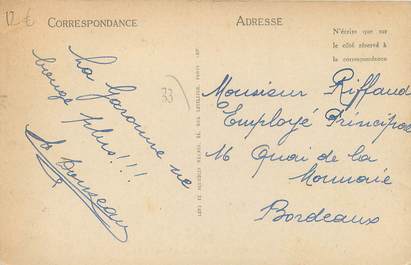 12 €
CORRESPONDANCE
ADRESSE
N'écrire que sur
le côté réservé à
la correspondance
33
La Garonne ne
bouge plus!!!
Monsieur Riffaud
Employé Principal
16 Quai de la
Monnaie
Bordeaux